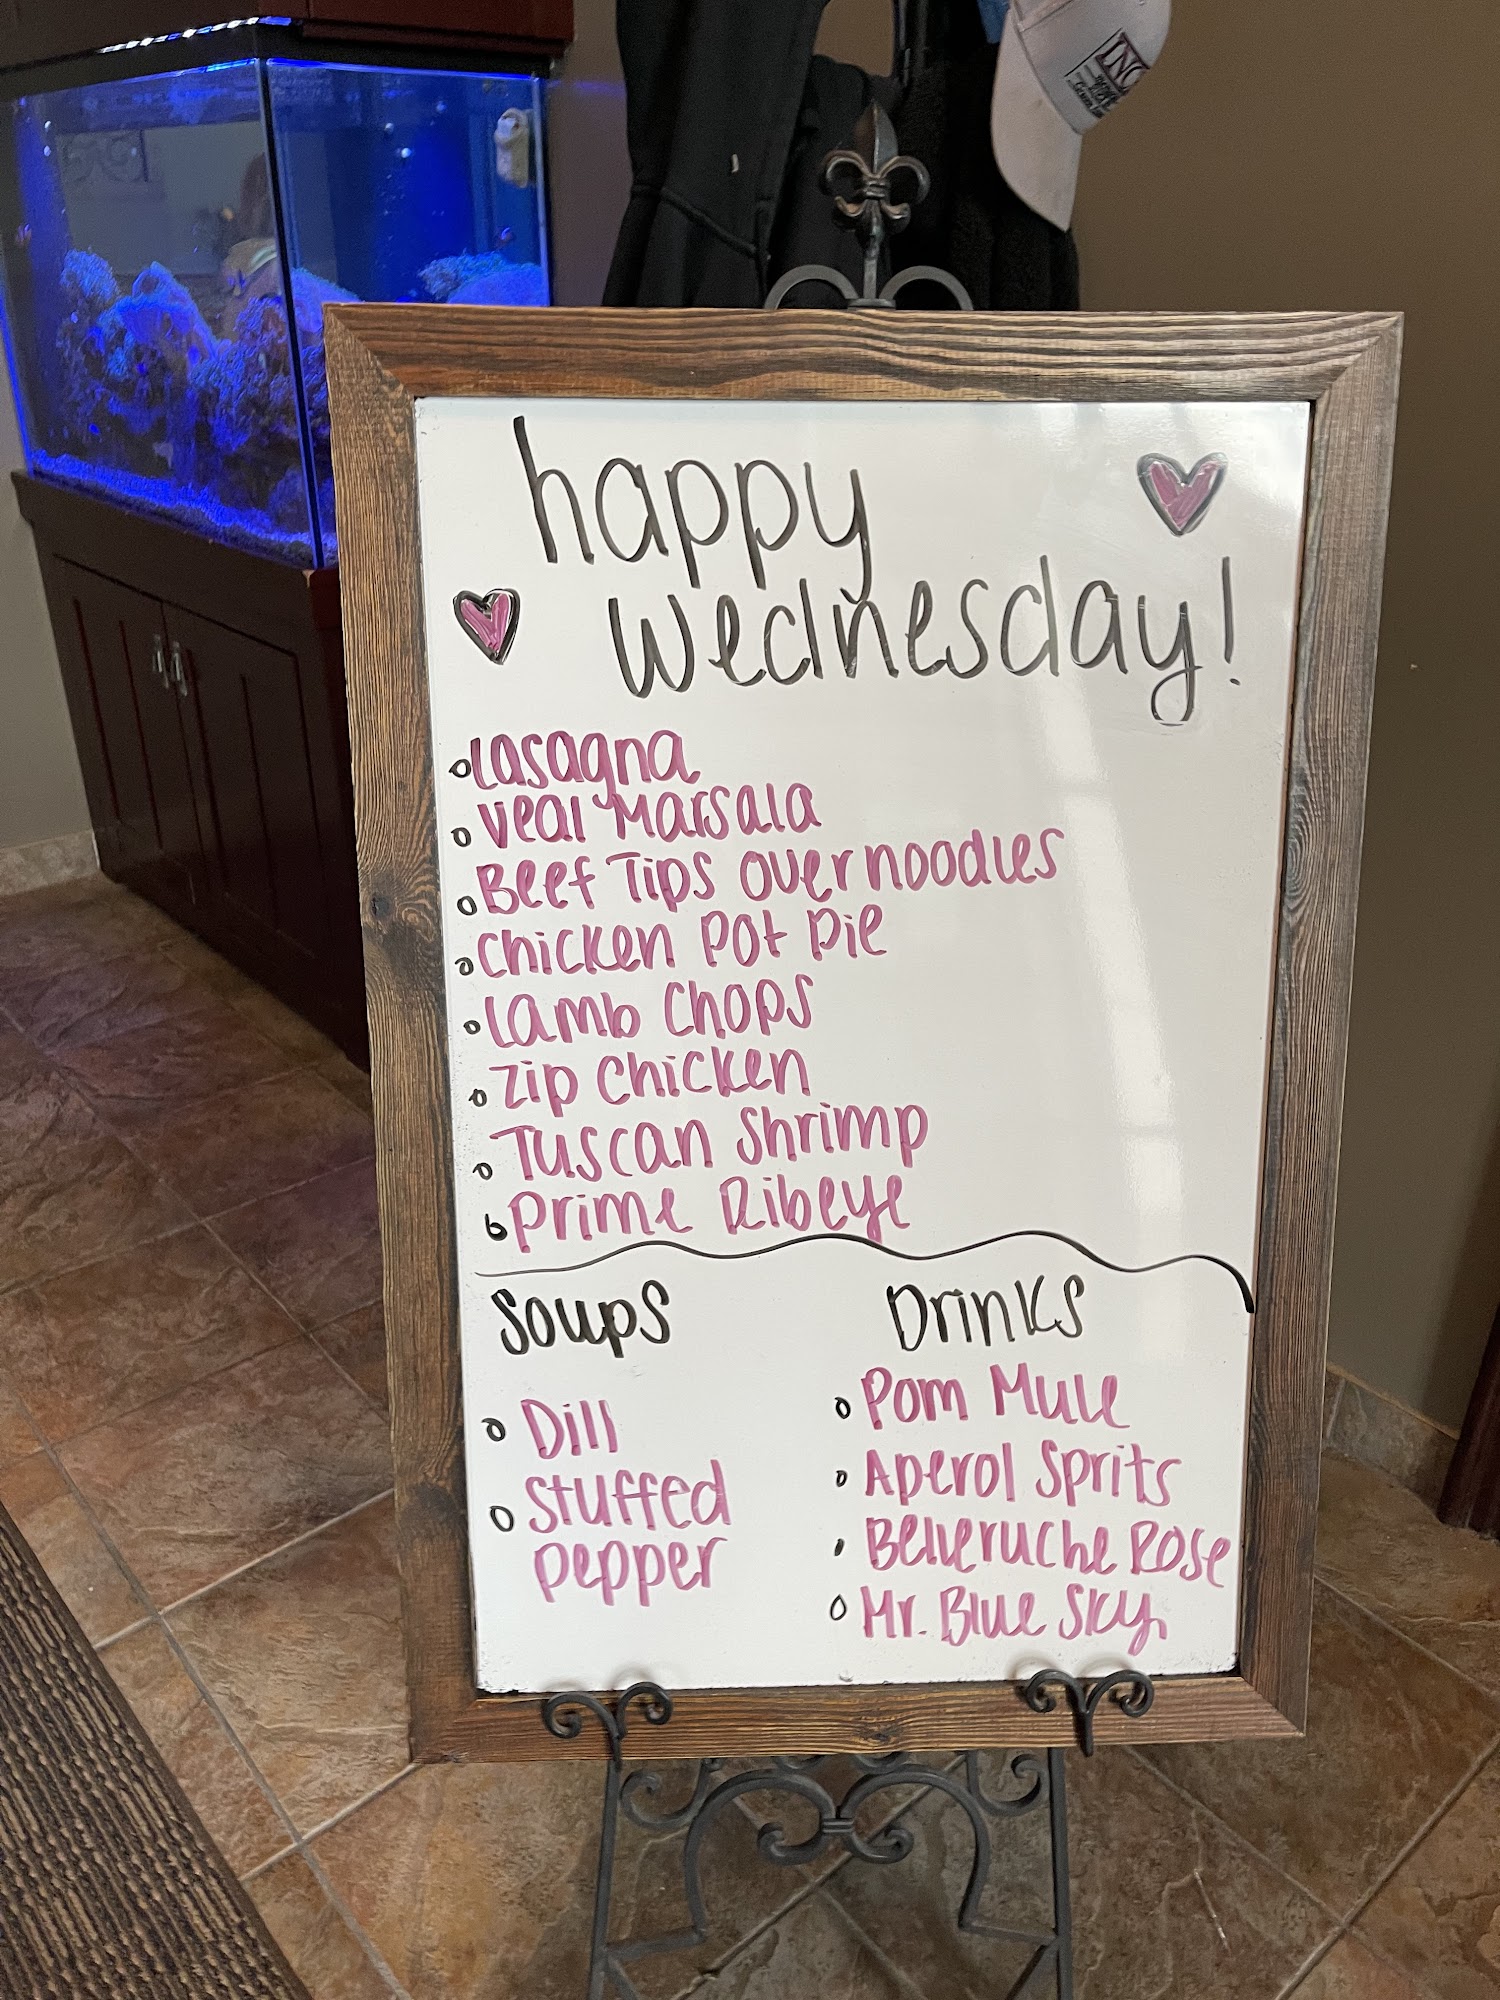 happy
Wednesday!
Lasagna
Veal Marsala
Beef Tips over noodles
Chicken Pot Pie
Lamb Chops
Zip Chicken
Tuscan Shrimp
Prime Ribeye
Soups
Dill
Stuffed
Pepper
Drinks
Pom Mule
Aperol Sprits
Belleruche Rose
Mr. Blue Sky